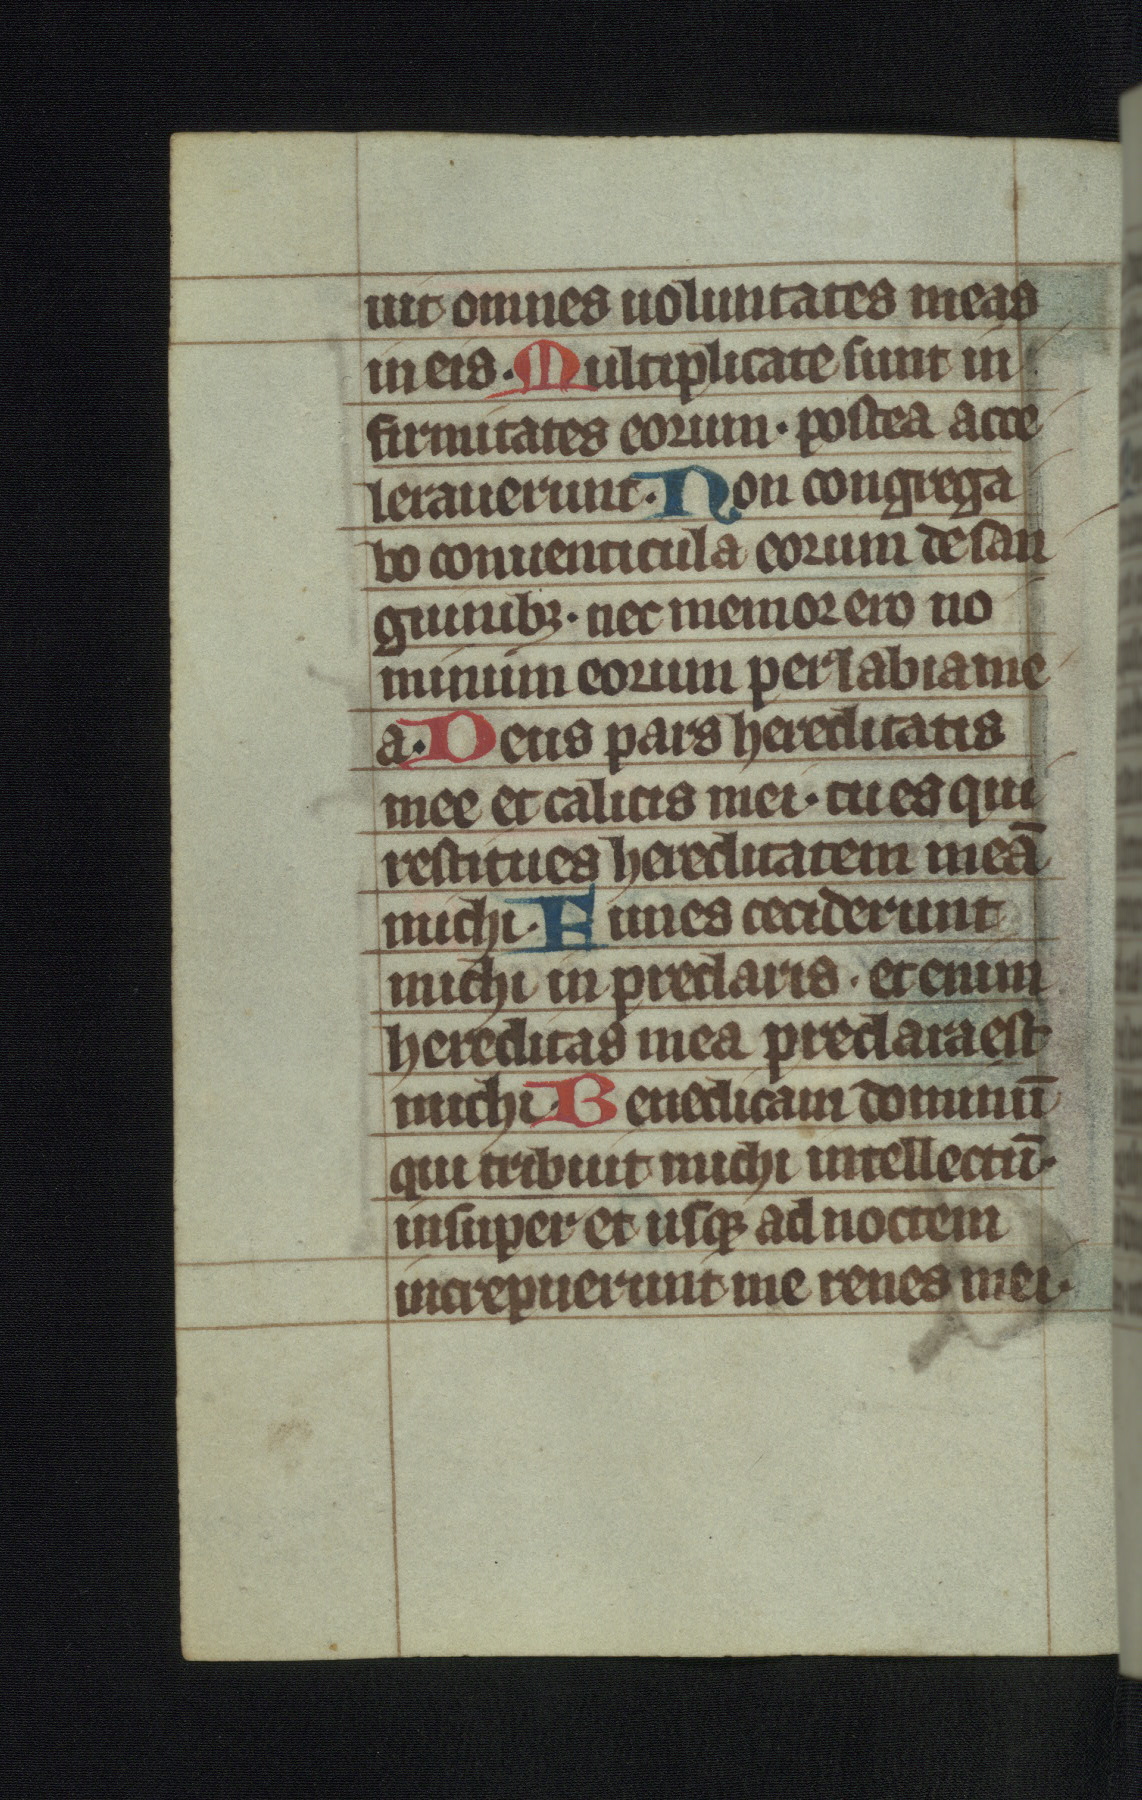 uit omnes uoluntates meas
in eis. Multiplicate sunt in
firmitates eorum. postea acce
lerauerunt. Non congrega
bo conuenticula eorum de san
guinibꝫ. nec memor ero no
minum eorum per labia me
a. Deus pars hereditatis
mee et calicis mei. tu es qui
restitues hereditatem meā
michi. Funes ceciderunt
michi in preclaris. et enim
hereditas mea preclara est
michi. Benedicam dominū
qui tribuit michi intellectū.
insuper et usqꝫ ad noctem
increpuerunt me renes mei.